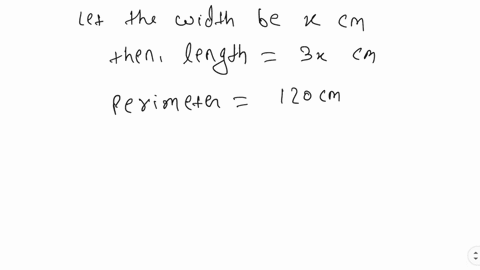 Let the width be x cm
then, length = 3x cm
perimeter = 120 cm